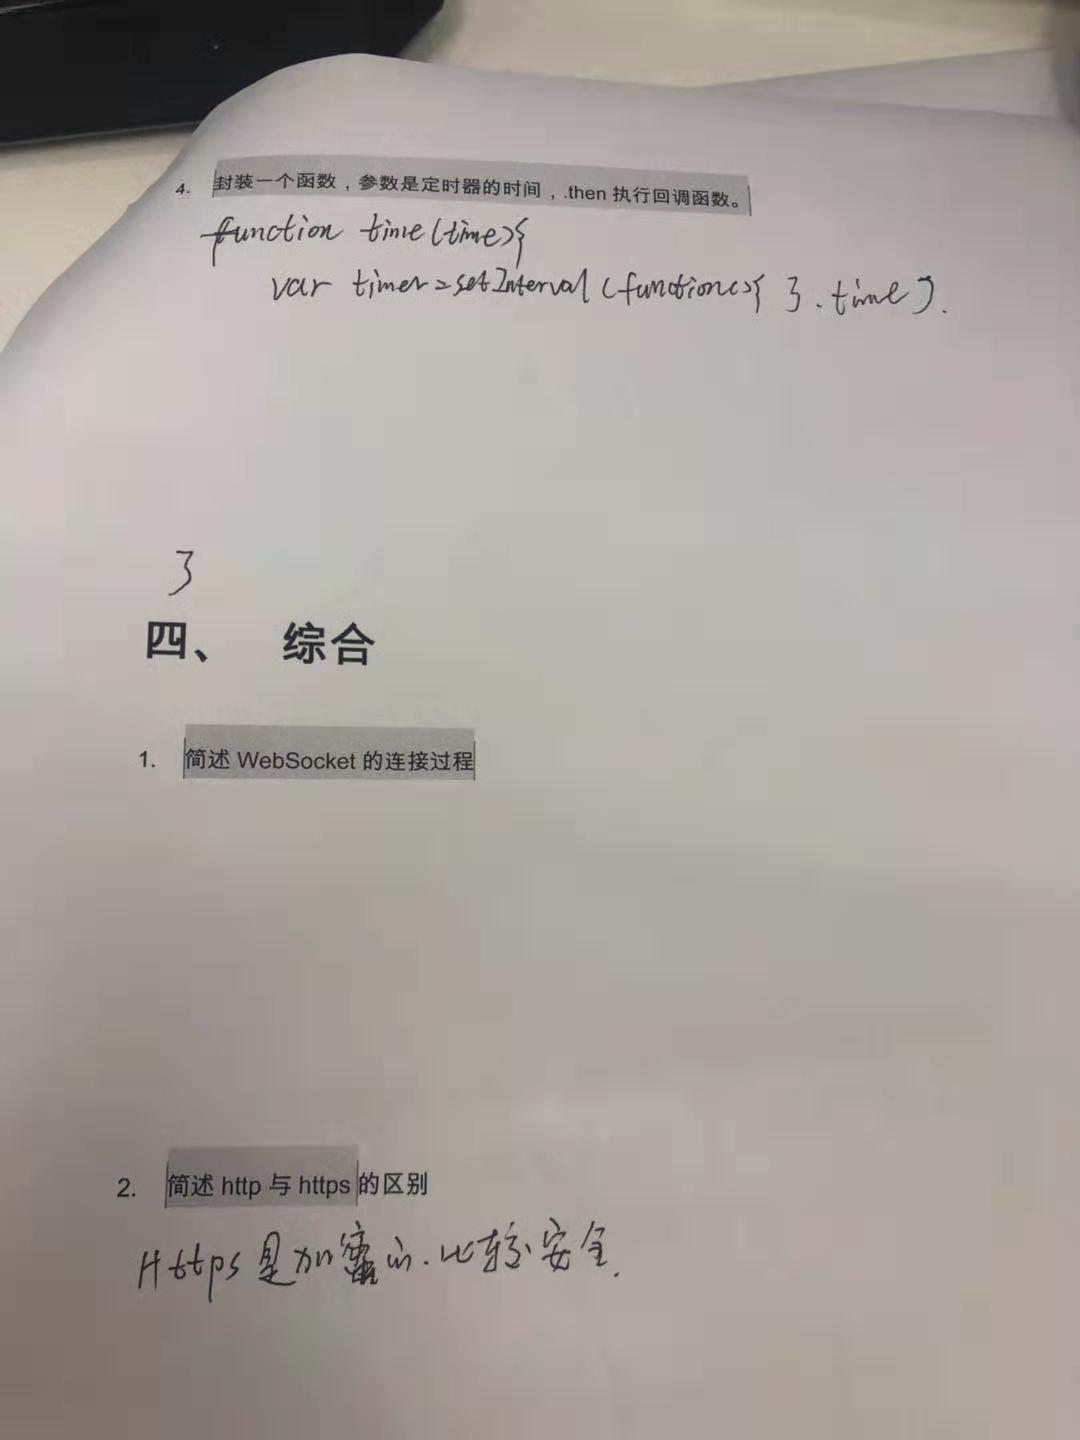 4. 封装一个函数，参数是定时器的时间，.then 执行回调函数。
function time(time){
var timer=setInterval(function(){ }.time).
}
四、 综合
1. 简述 WebSocket 的连接过程
2. 简述 http 与 https 的区别
Https是加密的.比较安全.